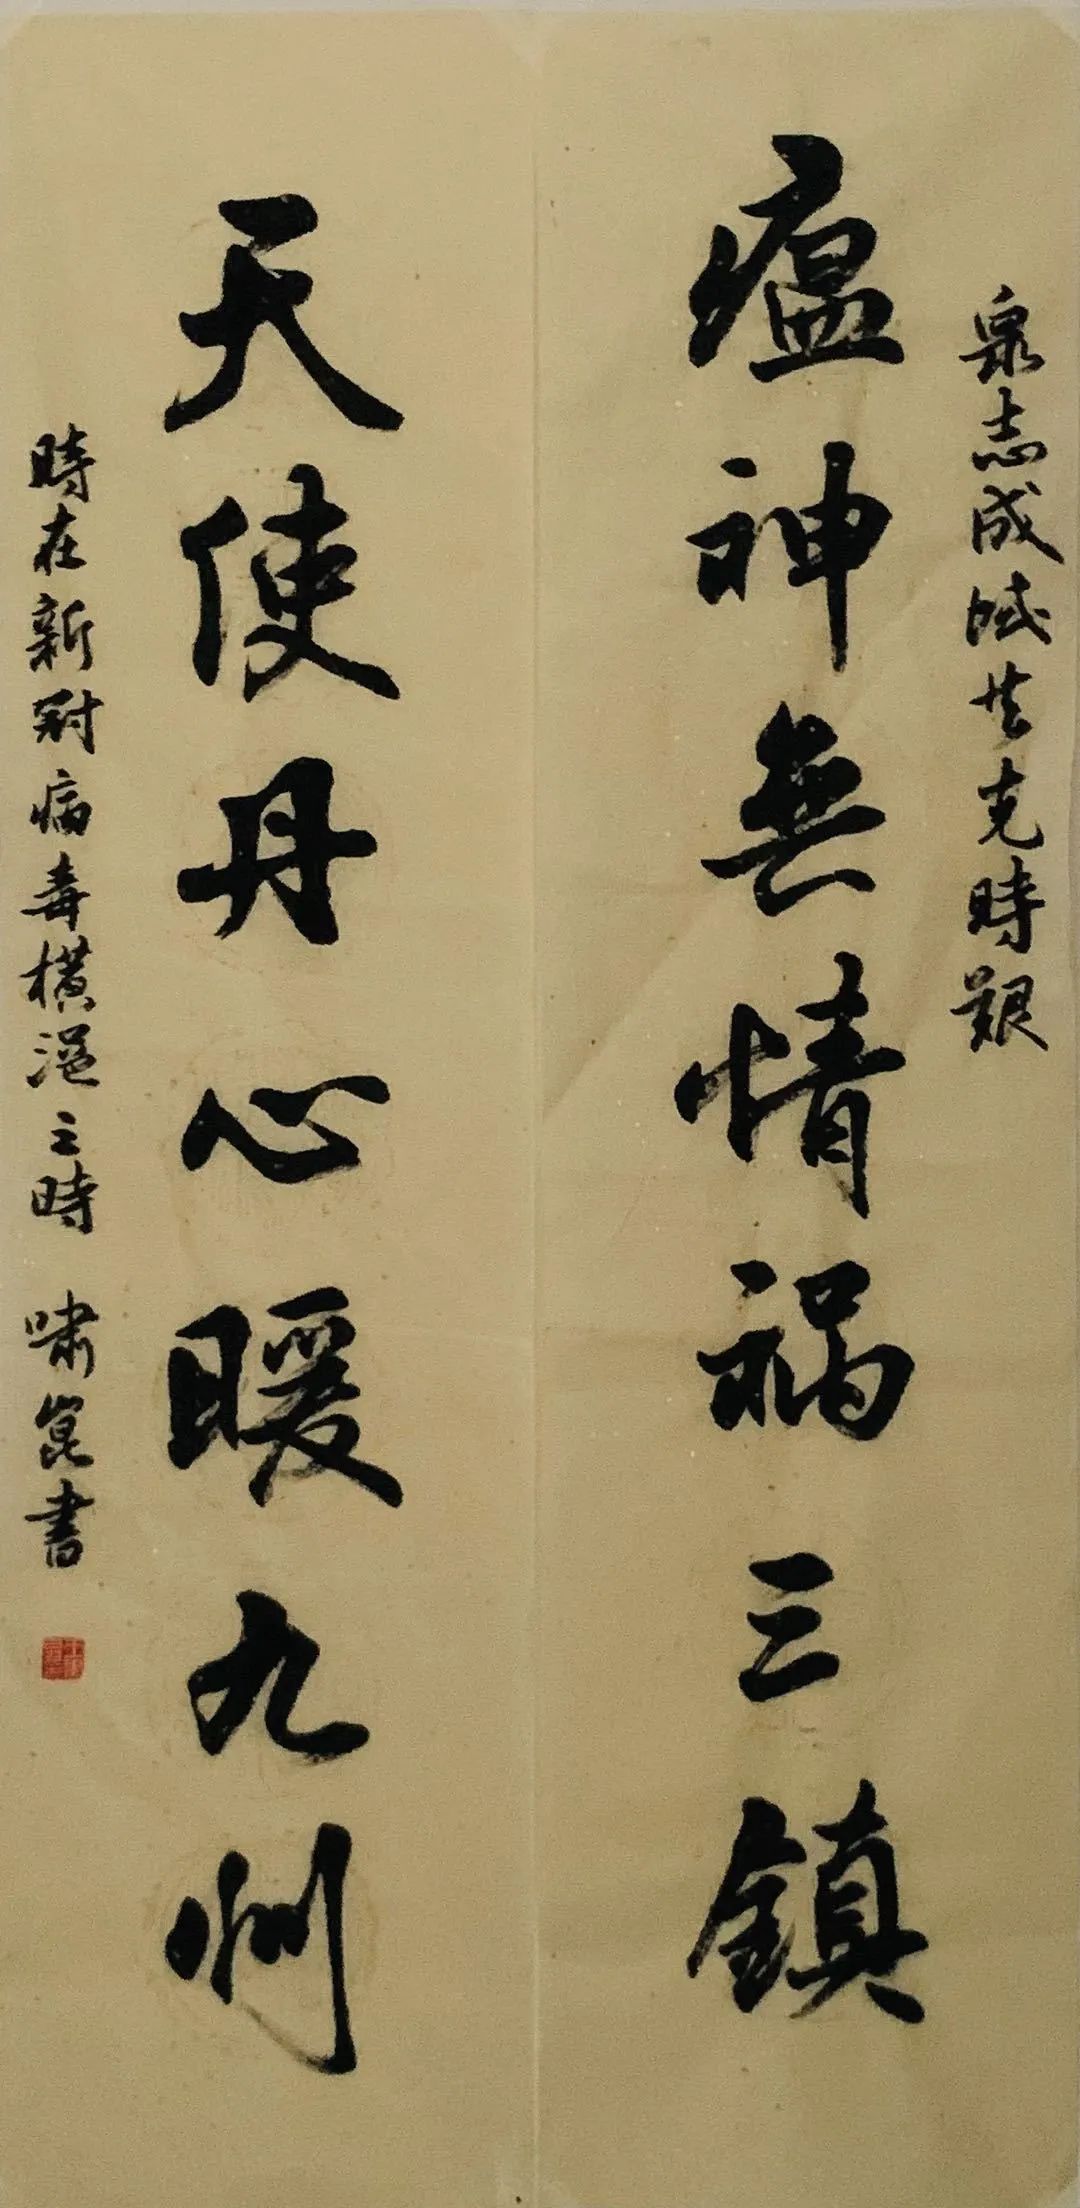 衆志成城共克時艱
瘟神無情祸三鎮
天使丹心暖九州
時在新冠病毒橫溢之時 啸崑書